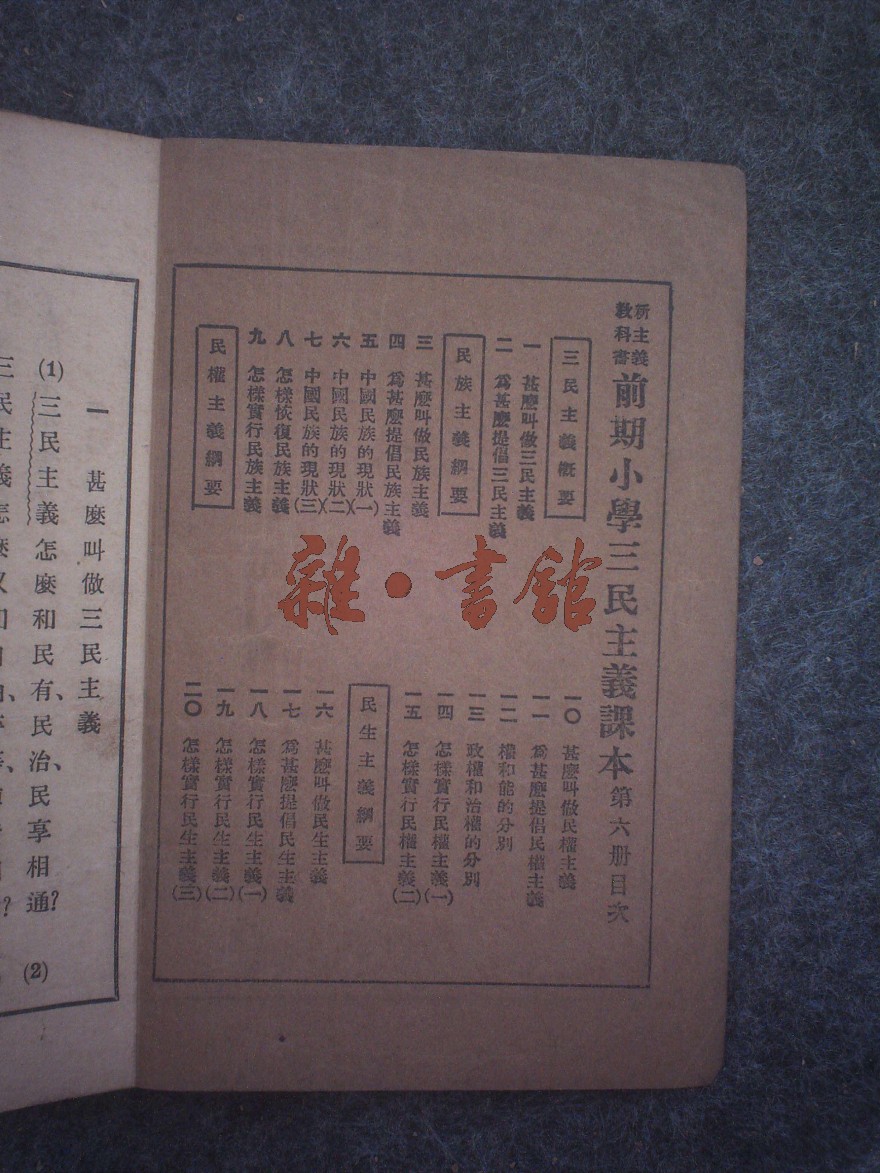 新主義教科書
前期小學三民主義課本 第六册目次
三民主義概要
一 甚麼叫做三民主義
二 爲甚麼提倡三民主義
民族主義綱要
三 甚麼叫做民族主義
四 爲甚麼提倡民族主義
五 中國民族的現狀(一)
六 中國民族的現狀(二)
七 中國民族的現狀(三)
八 怎樣恢復民族主義
九 怎樣實行民族主義
民權主義綱要
一〇 甚麼叫做民權主義
一一 爲甚麼提倡民權主義
一二 權和能的分別
一三 政權和治權的分別
一四 怎樣實行民權主義(一)
一五 怎樣實行民權主義(二)
民生主義綱要
一六 甚麼叫做民生主義
一七 爲甚麼提倡民生主義
一八 怎樣實行民生主義(一)
一九 怎樣實行民生主義(二)
二〇 怎樣實行民生主義(三)
雜·書館
一 甚麼叫做三民主義
(1) 三民主義怎麼和民有、民治、民享相通? (2)
三民主義怎麼